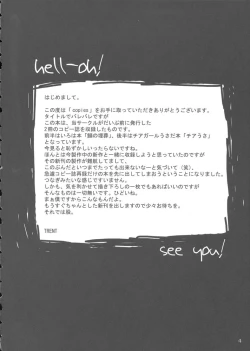 hell-oh!
はじめまして。
この度は「copiso」をお手に取っていただきありがとうございます。
タイトルでバレバレですが
この本は、当サークルがだいぶ前に発行した
2冊のコピー誌を収録したものです。
となっています。
今見ると恥ずかしいったらないですね。
ほんとは今製作中の新作と一緒に収録しようと思っていたのですが
その新刊の製作が難航してまして、
このぶんだといつまでたっても出来ないなーと気づいて（笑）、
急遽コピー誌再録だけの本を先に出してしまおうということになりました。
つなぎみたいな感じですいません。
しかも、気を利かせて描き下ろしの一枚でもあればいいのですが
そんなものは一切無いです。ひどいですね。
まぁ僕ですからこんなもんです。
もうすぐちゃんとした新刊を出しますので少々お待ちを。
それでは股。
TRENT
see you!
4